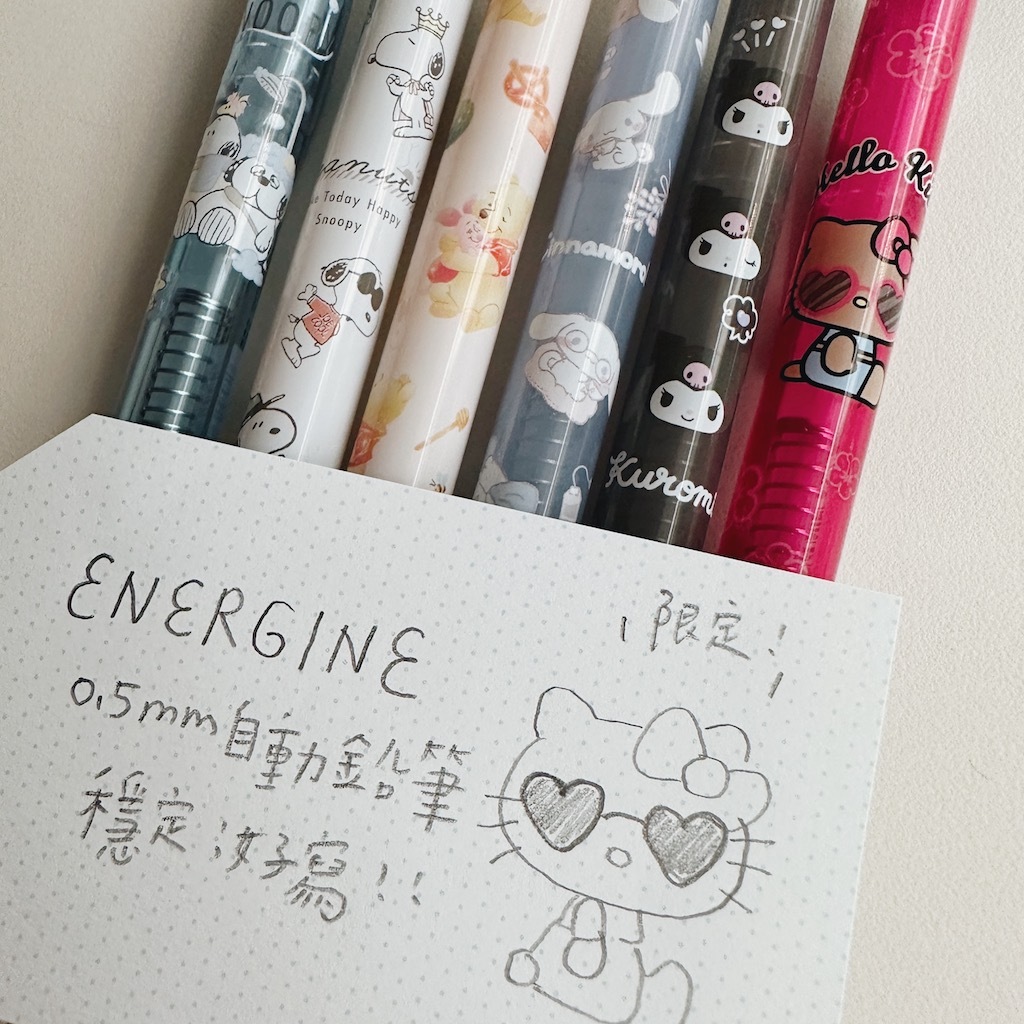 Peanuts
Today Happy
Snoopy
Cinnamoro
Kuromi
Hello Ki
ENERGINE
限定!
0.5mm自動鉛筆
穩定 好寫!!